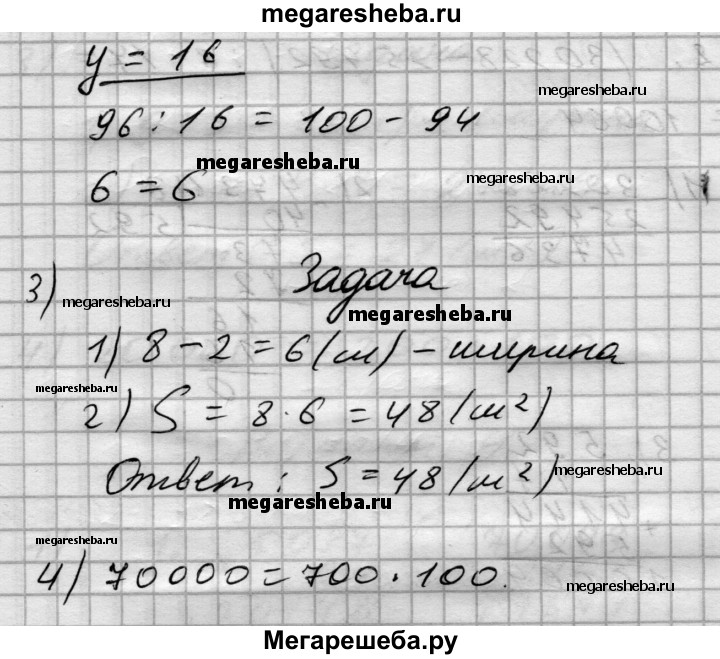 megaresheba.ru
y = 16
megaresheba.ru
96 : 16 = 100 - 94
megaresheba.ru
megaresheba.ru
6 = 6
3) Задача
megaresheba.ru
megaresheba.ru
1) 8 - 2 = 6 (м) - ширина
megaresheba.ru
2) S = 8 · 6 = 48 (м²)
Ответ: S = 48 (м²)
megaresheba.ru
megaresheba.ru
megaresheba.ru
4) 70000 = 700 · 100.
megaresheba.ru
Мегарешеба.ру